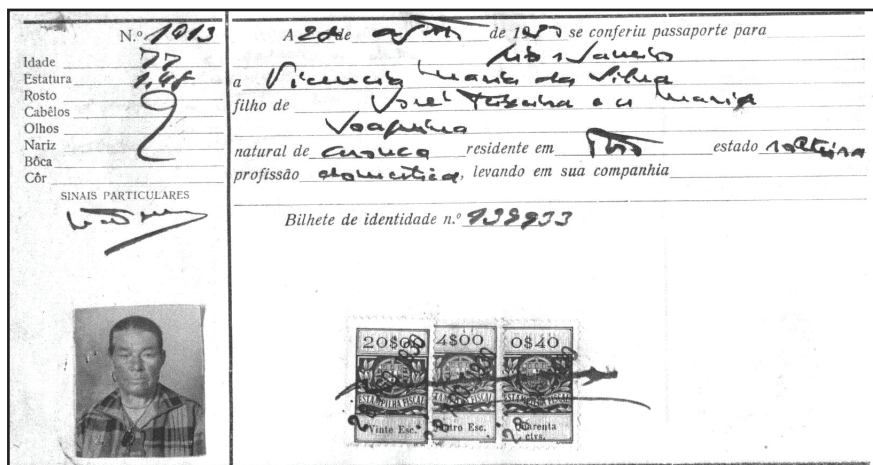 N.º 1913
Idade 77
Estatura 1,48
Rosto
Cabêlos
Olhos
Nariz
Bôca
Côr
SINAIS PARTICULARES
A 28 de de 19 se conferiu passaporte para
Rio Janeiro
a Vicencia Maria da Silva
filho de José Teixeira e Maria
Joaquina
natural de Arouca residente em estado solteira
profissão domestica, levando em sua companhia
Bilhete de identidade n.º 139933
20$00 4$00 0$40
ESTAMPILHA FISCAL ESTAMPILHA FISCAL ESTAMPILHA FISCAL
Vinte Esc. Quatro Esc. Quarenta
ctvs.